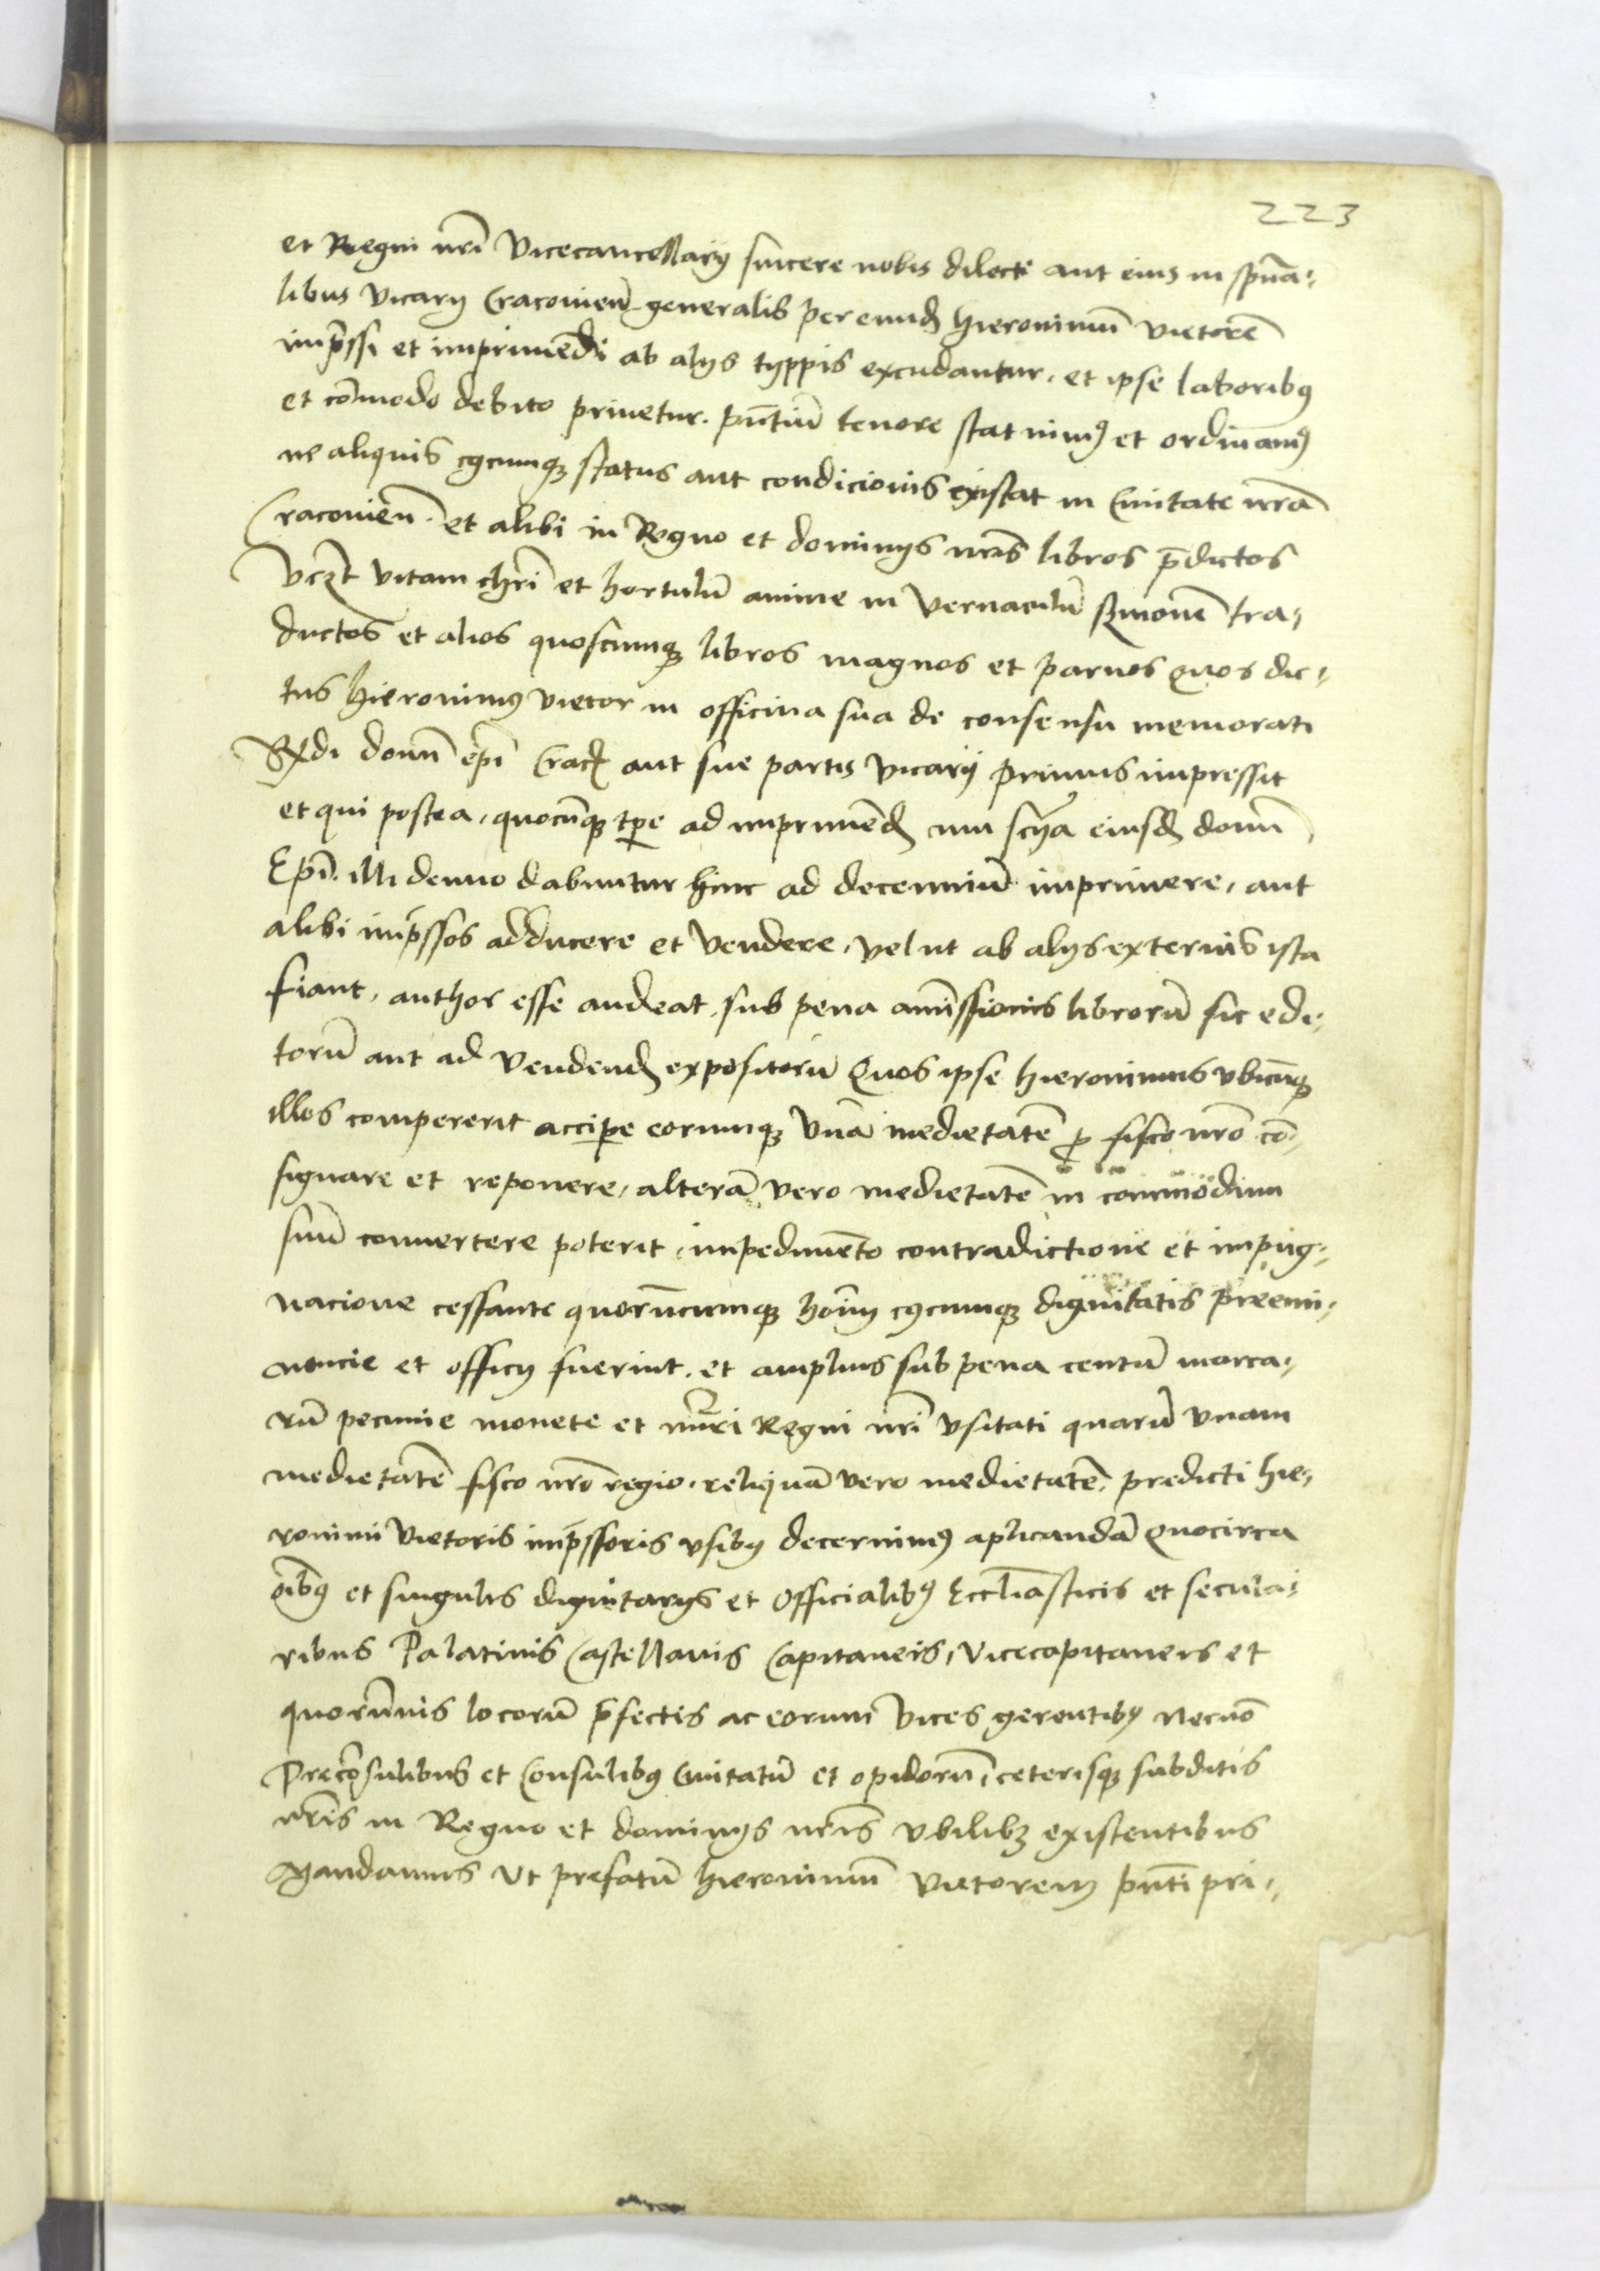 223
et Regni nr̃i Vicecancellarÿ sincere nobis dilecti aut eius in spũa-
libus vicarÿ Cracovien̄ generalis per eundẽ hieronimũ vietorẽ
imp̃ssi et imprimẽdi ab alÿs typpis excudantur, et ipse laboribꝰ
et cõmodo debito privetur. pñtiũ tenore statuimꝰ et ordinamꝰ
ne aliquis cꝰcumqꝫ status aut condicionis existat in Civitate nr̃a
Cracovien̄. et alibi in Regno et dominÿs nr̃is libros p̃dictos
vꝫt vitam chr̃i et hortulũ anime in vernaculũ s̃monẽ tra-
ductos et alios quoscumqꝫ libros magnos et parvos quos dic-
tus hieronimꝰ vietor in officina sua de consensu memorati
R̃di domĩ ep̃i Crac̃ aut sue partis vicarÿ primus impressit
et qui postea, quocũqꝫ tp̃e ad imprimẽdẽ eiusdẽ domĩ
Ep̃i illi denuo dabuntur hinc ad decenniũ imprimere, aut
alibi imp̃ssos adducere et vendere, vel ut ab alÿs externis ista
fiant, author esse audeat, sub pena amissionis librorũ sic edi-
torũ aut ad vendendẽ expositorũ Quos ipse hieronimus ubicũqꝫ
illos compererit accipe eorumqꝫ unã medietatẽ ꝓ fisco nr̃o cõ-
signare et reponere, alterã vero medietatẽ in commodum
suũ convertere poterit, impedimẽto contradictione et impug-
nacione cessante quorũcumqꝫ hoĩm cꝰcumqꝫ dignitatis preemi-
nencie et officÿ fuerint. et amplius sub pena centũ marca-
rũ pecunie monete et nũeri Regni nr̃i usitati quarũ unam
medietatẽ fisco nr̃o regio, reliquã vero medietatẽ, predicti hie-
ronimi vietoris imp̃ssoris usibꝰ decernimꝰ aplicandã Quocirca
oĩbꝰ et singulis dignitarÿs et Officialibꝰ Eccliãsticis et secula-
ribus Palatinis Castellanis Capitaneis, Vicecapitaneis et
quorũvis locorũ p̃fectis ac eorum vices gerentibꝰ Necnõ
Precõsulibus et Consulibꝰ Civitatũ et opidorũ, ceterisqꝫ subditis
nr̃is in Regno et dominÿs nr̃is ubilibꝫ existentibus
Mandamus ut prefatũ hieronimũ vietorem pñti pri-